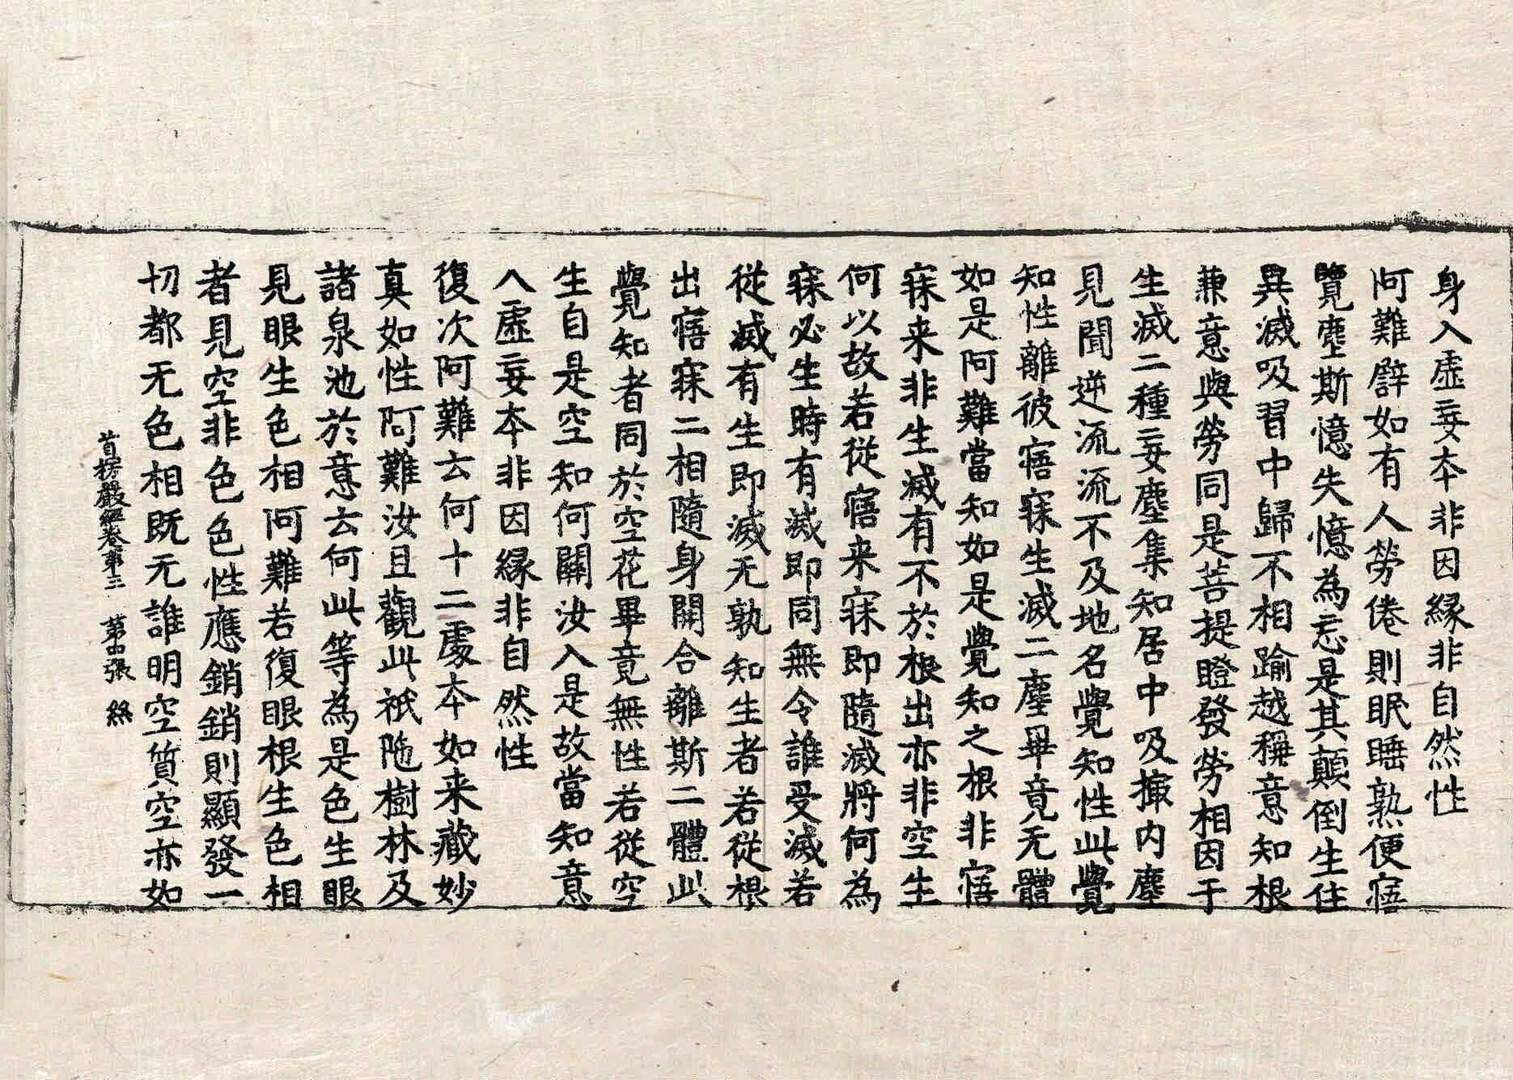 身入虛妄本非因縁非自然性
阿難譬如有人勞倦則眠睡熟便寤
覽塵斯憶失憶為忘是其顛倒生住
異滅吸習中歸不相踰越稱意知根
兼意與勞同是菩提瞪發勞相因于
生滅二種妄塵集知居中吸撮内塵
見聞逆流流不及地名覺知性此覺
知性離彼寤寐生滅二塵畢竟无體
如是阿難當知如是覺知之根非寤
寐来非生滅有不於根出亦非空生
何以故若從寤来寐即隨滅將何為
寐必生時有滅即同無令誰受滅若
從滅有生即滅无孰知生者若從根
出寤寐二相隨身開合離斯二體此
覺知者同於空花畢竟無性若從空
生自是空知何關汝入是故當知意
入虛妄本非因縁非自然性
復次阿難云何十二處本如来藏妙
真如性阿難汝且觀此祇陁樹林及
諸泉池於意云何此等為是色生眼
見眼生色相阿難若復眼根生色相
者見空非色色性應銷銷則顯發一
切都无色相既无誰明空質空亦如
首楞嚴經卷第三 第四張 絲